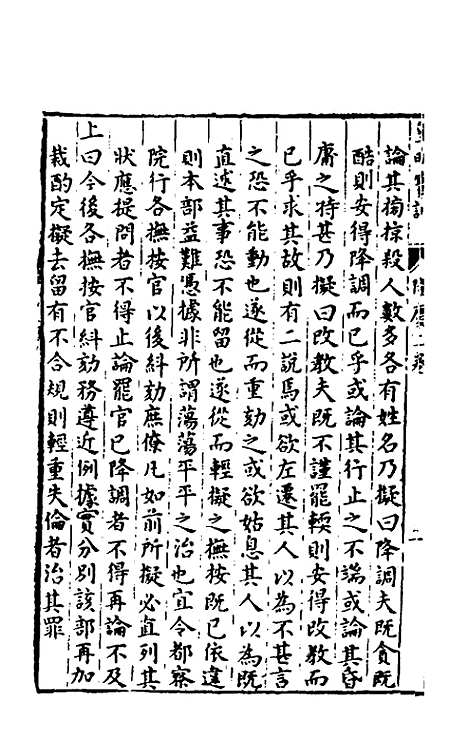 論其掏掠殺人數多各有姓名乃擬曰降調夫既貪既
酷則安得降調而已乎或論其行止之不端或論其昏
庸之特甚乃擬曰改教夫既不謹罷輭則安得改教而
已乎求其故則有二說焉或欲左遷其人以為不甚言
之恐不能動也遂從而重劾之或欲姑息其人以為既
直述其事恐不能留也遂從而輕擬之撫按既已依違
則本部益難憑據非所謂蕩蕩平平之治也宜令都察
院行各撫按官以後糾劾庶僚凡如前所擬必直列其
狀應提問者不得止論罷官已降調者不得再論不及
上曰今後各撫按官糾劾務遵近例據實分別該部再加
裁酌定擬去留有不合規則輕重失倫者治其罪
皇明寶訓
隆慶二卷
二